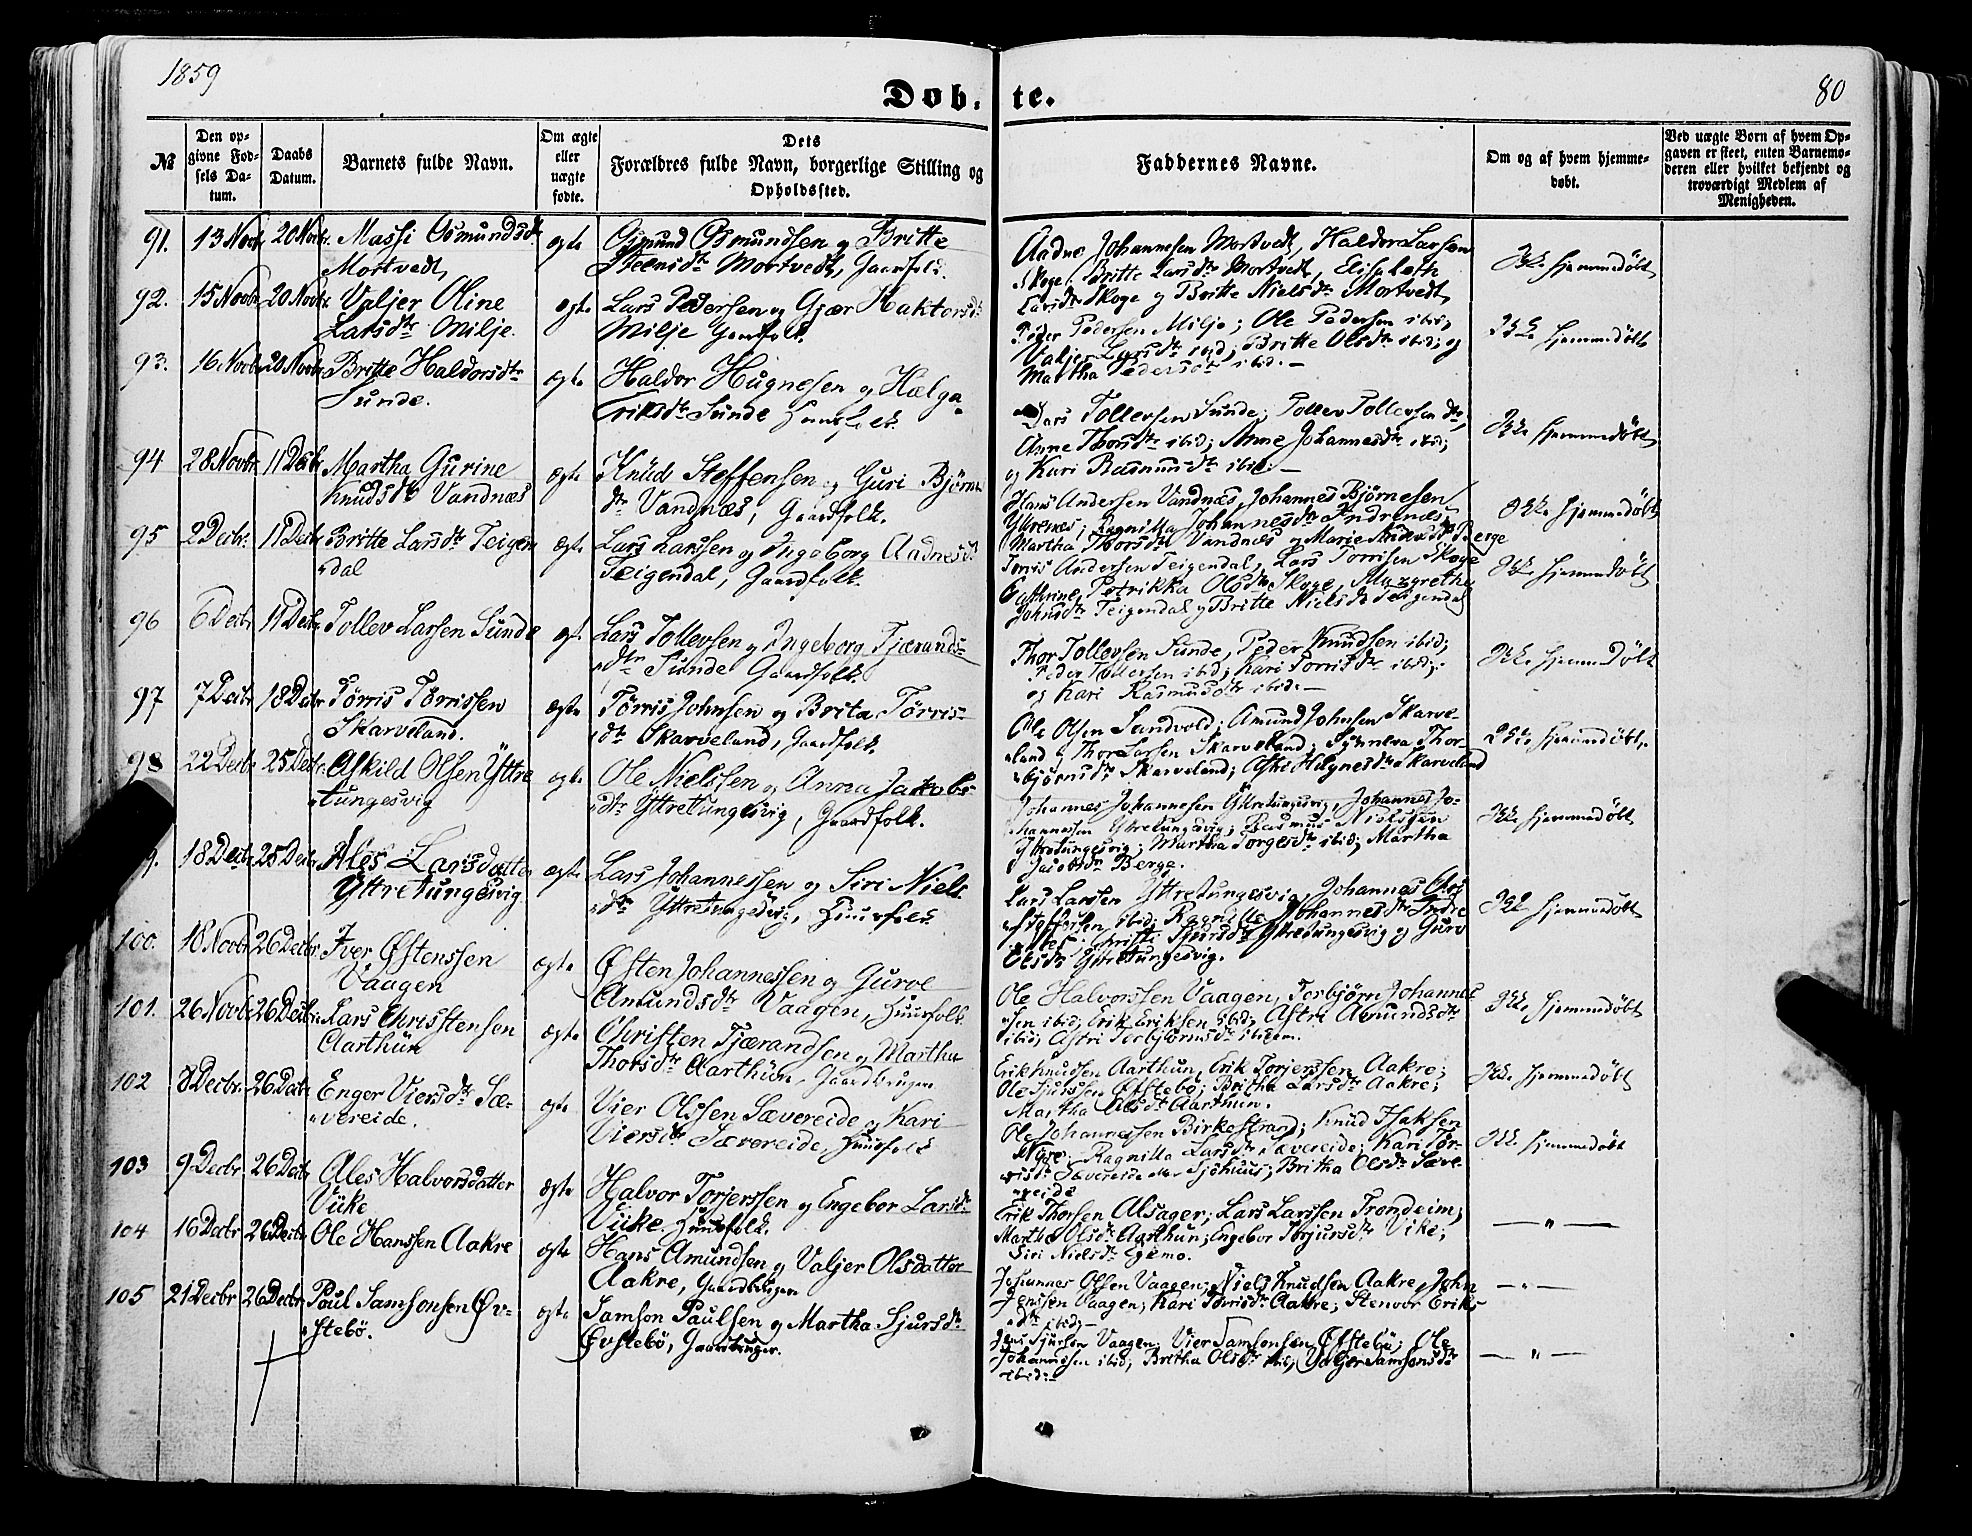 1859
Døb-te.
80
№
Den op-
givne Fød-
sels Da-
tum.
Daabs
Datum.
Barnets fulde Navn.
Om ægte
eller
uægte
fødte.
Dets
Forældres fulde Navn, borgerlige Stilling og
Opholdssted.
Faddernes Navne.
Om og af hvem hjemme-
døbt.
Ved uægte Børn af hvem Op-
gaven er skeet, enten Barnemo-
deren eller hvilket bekjendt og
troværdigt Medlem af
Menigheden.
91. 13 Novbr. 20 Novbr. Massi Osmundsdtr
Mortvedt,
ægte
Osmund Osmundsen og Britte
Steensdtr Mortvedt, Gaardfolk.
Aadne Johannesen Mortvedt, Haldor Larsen
Skoge, Britte Larsdtr Mortvedt, Elisabeth
Skoge og Britte Nielsdtr Mortvedt
Ikke hjemmedøbt
92. 15 Novbr. 20 Novbr. Valjer Oline
Larsdtr Milje.
ægte
Lars Pedersen og Gjær Haktorsdtr
Milje Gaardfolk.
Peder Pedersen Milje; Ole Pedersen ibid;
Valjer Larsdtr ibid; Britte Olsdtr ibid; og
Martha Pedersdtr ibid.—
Ikke hjemmedøbt
93. 16 Novbr. 20 Novbr. Britte Haldorsdtr
Sunde.
ægte
Haldor Hugnesen og Hælga
Eriksdtr Sunde Huusfolk.
Lars Tollevsen Sunde; Tollev Tollevsen
Anne Thorsdtr ibid; Anne Johannesdtr ibid;
og Kari Rasmusdtr ibid.—
Ikke hjemmedøbt
94 28 Novbr. 11 Decbr. Martha Gurine
Knudsdtr Vandnæs
ægte
Knud Steffensen og Guri Bjørns
dtr Vandnæs, Gaardfolk.
Hans Andersen Vandnæs, Johannes Bjørnesen
Yttrenes; Ragnilla Johannesdtr Indrenæs,
Martha Thorsdtr Vandnæs og Marie Andersdtr Berge
Ikke hjemmedøbt
95 2 Decbr. 11 Decbr. Britte Larsdtr Teigen
dal
ægte
Lars Larssen og Ingeborg Aadnesdtr
Teigendal, Gaardfolk.
Torris Andersen Teigendal, Lars Torrisen Skoge
Cathrine Petrikka Olsdtr Skoge, Margrethe
Johnsdtr Teigendal og Britte Nielsdtr Teigendal
Ikke hjemmedøbt
96 6 Decbr. 11 Decbr. Tollev Larsen Sunde
ægte
Lars Tollevsen og Ingeborg Tjærands-
dtr Sunde Gaardfolk.
Thor Tollevsen Sunde, Peder Knudsen ibid;
Peder Tollevsen ibid; Kari Torrisdtr ibid;
og Kari Rasmusdtr ibid.—
Ikke hjemmedøbt
97 7 Decbr. 18 Decbr. Tørris Tørrissen
Skarveland.
ægte
Tørris Johnsen og Brita Tørris-
dtr Skarveland, Gaardfolk.
Ole Olsen Sandvold; Amund Johnsen Skarve-
land, Thor Larsen Skarveland; Synneva Thor-
bjørnsdtr Skarveland; Skarveland
Ikke hjemmedøbt.
98 22 Decbr. 25 Decbr. Askild Olsen Yttre
tungesvig
ægte
Ole Nielssen og Anna Jakobs-
dtr Yttretungesvig, Gaardfolk.
Johannes Johannesen Yttretungesvig, Johannes Jo-
hannessen Yttretungesvig; Rasmus Nielsen
Yttretungesvig; Martha Torgesdtr ibid; Martha
Jacobsdtr Berge.
Ikke hjemmedøbt
9. 18 Decbr. 25 Decbr. Ales Larsdatter
Yttretungesvig
ægte
Lars Johannessen og Siri Niels
dtr Yttretungesvig, Huusfolk
Lars Larsen Yttretungesvig, Johannes
Steffensen ibid; Ragnille Johannesdtr Indre
Christi Sjursdtr Yttretungesvig og Gurv
Olsdtr Yttretungesvig.
Ikke hjemmedøbt
100. 18 Novbr. 26 Decbr. Iver Østenssen
Vaagen
ægte
Østen Johannessen og Gurve
Amundsdtr Vaagen, Huusfolk.
Ole Halvorssen Vaagen, Torbjørn Johannes
sen ibid; Erik Eriksen ibid; Astri Amundsdtr
ibid; Astri Torbjørnsdtr ibidem.
Ikke hjemmedøbt
101. 26 Novbr. 26 Decbr. Lars Christensen
Aarthun
ægte
Christen Tjærandsen og Martha
Thorsdtr Aarthun, Gaardbrugere
Erik Knudsen Aarthun, Erik Torjerssen Aakre;
Ole Sjurssen Øfstebø; Britha Larsdtr Aakre;
Martha Olsdtr Aarthun.
Ikke hjemmedøbt
102 8 Decbr. 26 Decbr. Enger Viersdtr Sæ-
vereide.
ægte
Vier Olssen Sævereide og Kari
Viersdtr Sævereide, Huusfolk
Ole Johannessen Birkestrand; Knud Isaksen
Nygre, Ragnilla Larsdtr Sævereide; Kari Tør-
risdtr Sævereide Sjøhuus; Britha Olsdtr Sæve-
reide
Ikke hjemmedøbt
103 9 Decbr. 26 Decbr. Ales Halvorsdatter
Viike
ægte
Halvor Torjerssen og Engebor Larsdtr
Viike, Huusfolk.
Erik Thorsen Alsager; Lars Larssen Trondeim;
Martha Olsdtr Aarthun; Engebor Torjursdtr Vike;
Siri Nielsdtr Egemo.
— " —
104 16 Decbr. 26 Decbr. Ole Hanssen Aakre
ægte
Hans Amundsen og Valjer Olsdatter
Aakre, Gaardbrugere
Johannes Olsen Vaagen; Niels Knudsen Aakre, John
Jenssen Vaagen; Kari Tørrisdtr Aakre; Stenvor Eriks-
dtr ibid.—
— " —
105 21 Decbr. 26 Decbr. Poul Samsonsen Øv-
stebø.
ægte
Samson Paulsen og Martha Sjursdtr
Øvstebø, Gaardbruger.
Jens Sjursen Vaagen; Vier Samsonsen Øfstebø; Ole
Johannesen ibid; Britha Olsdtr ibid; Valjer Samsonsdtr
ibid.—
— " —